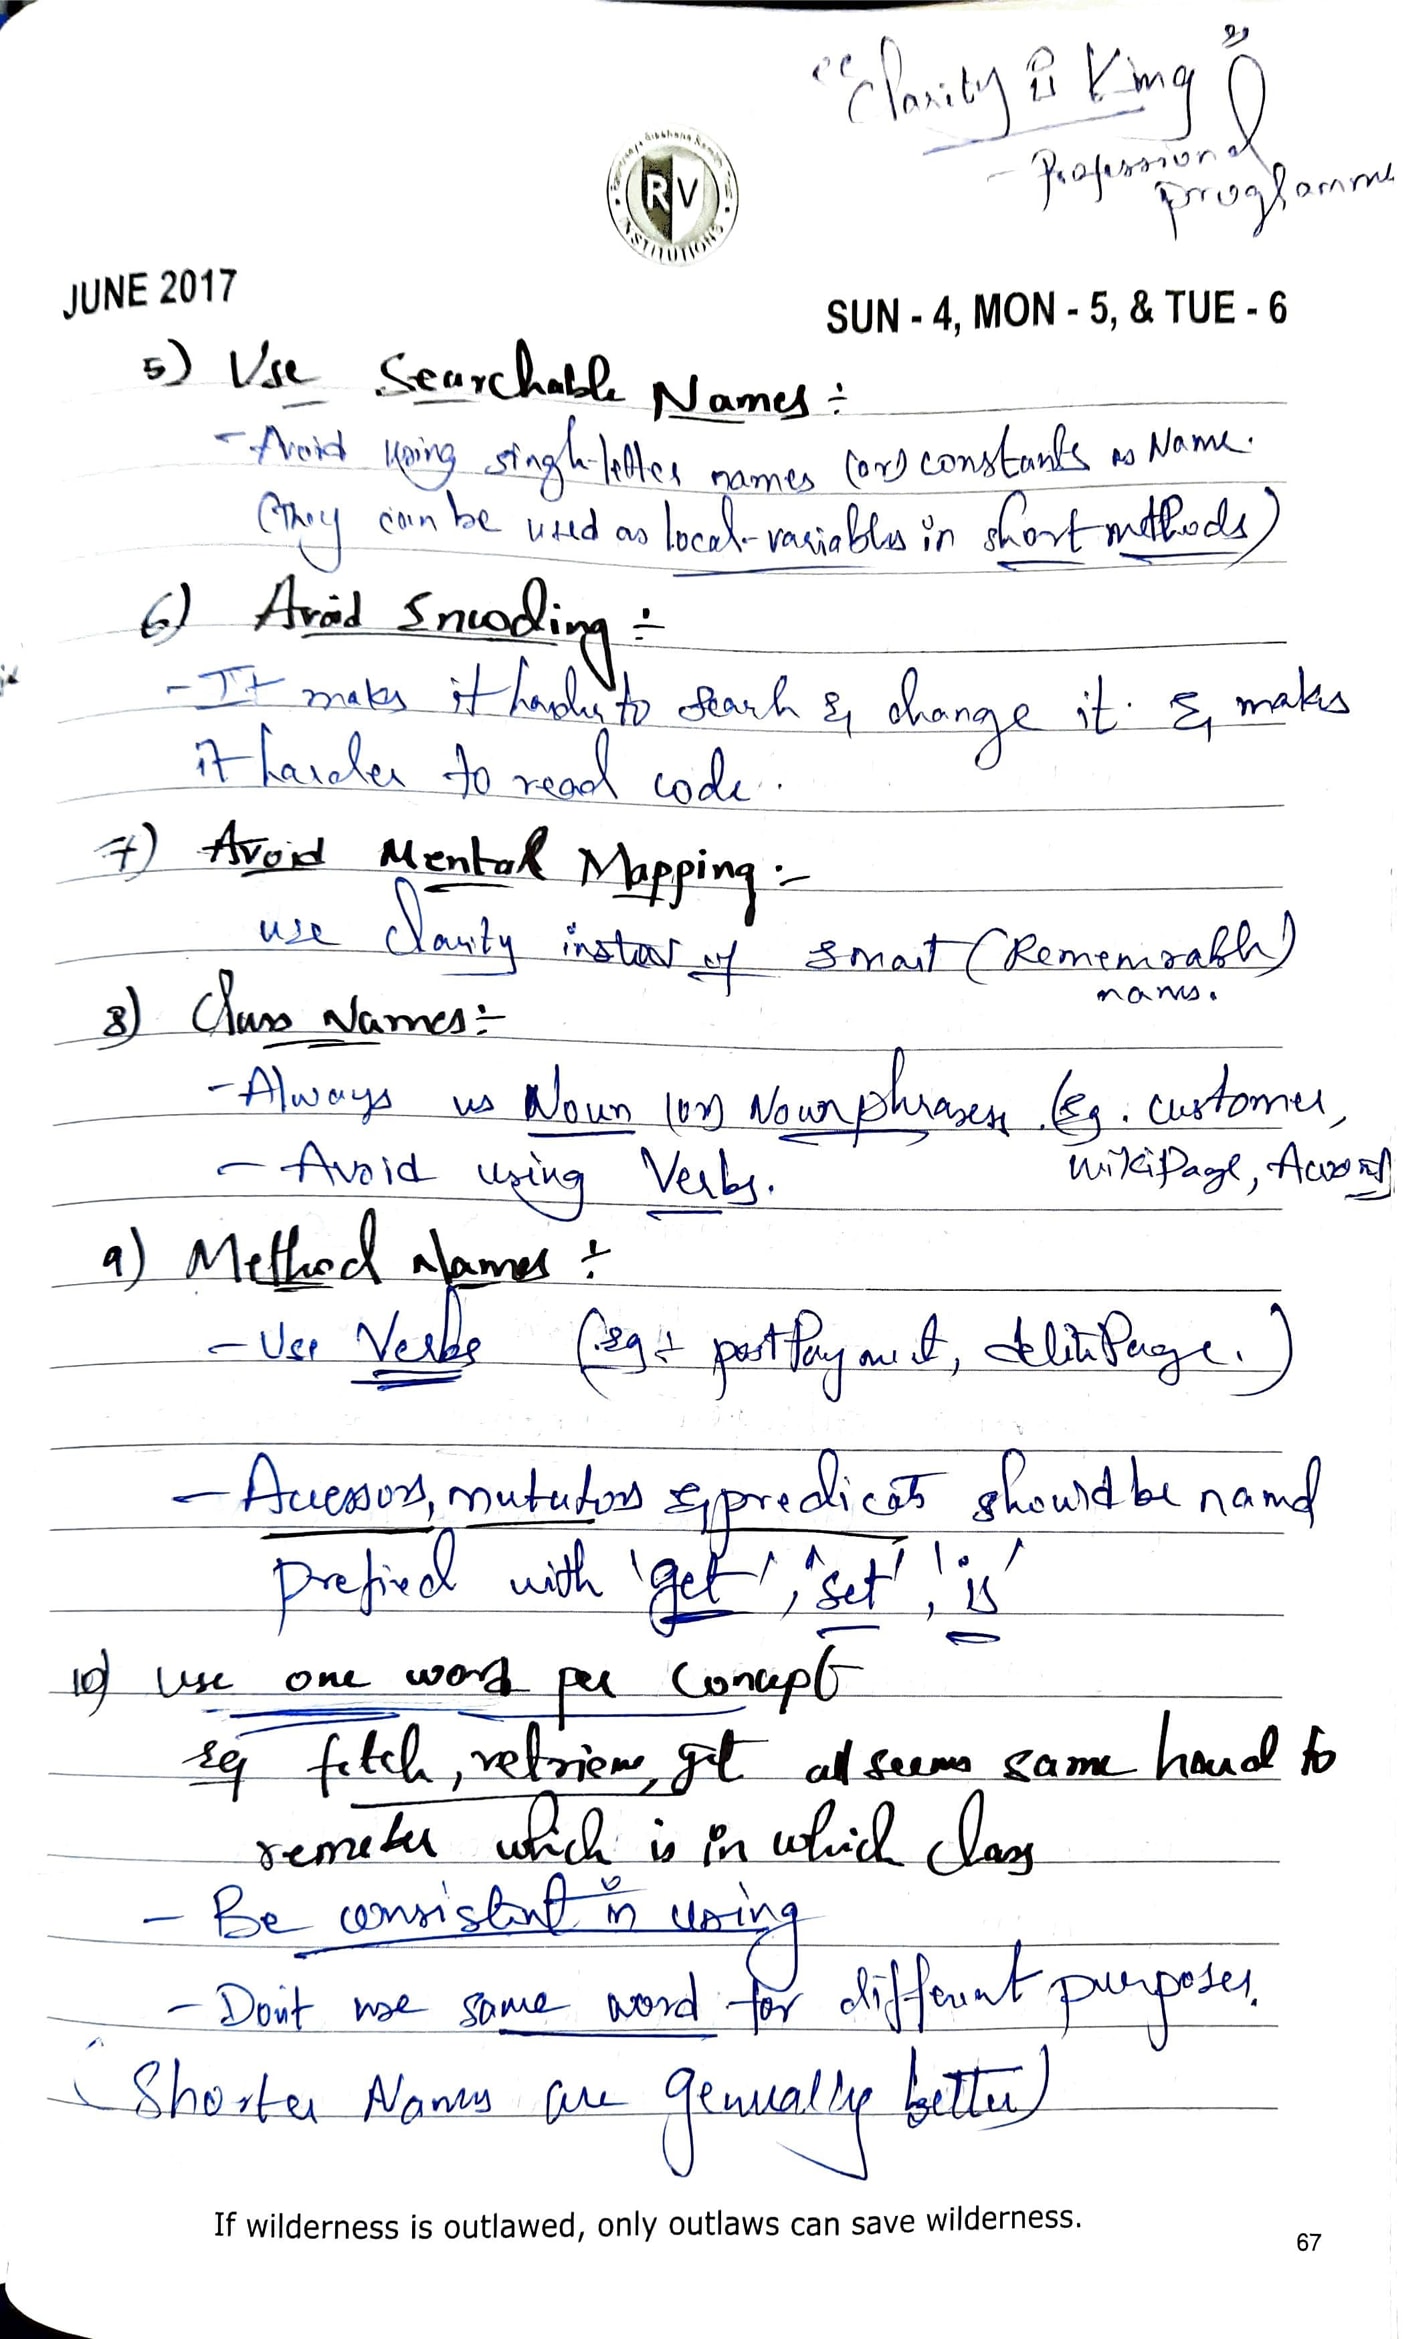 "Clarity is King"
- Professional
programme
RV
INSTITUTIONS
JUNE 2017
SUN - 4, MON - 5, & TUE - 6
5) Use Searchable Names :-
- Avoid using single-letter names (or) constants as Name.
(They can be used as local-variables in short methods)
6) Avoid Encoding :-
- It makes it harder to search & change it. & makes
it harder to read code.
7) Avoid Mental Mapping :-
use clarity instead of smart (Rememorable)
names.
8) Class Names :-
- Always us Noun (or) Noun phrases. (eg. customer,
wikiPage, Account)
- Avoid using Verbs.
9) Method Names :-
- Use Verbs (eg :- postPayment, deletePage.)
- Accessors, mutators & predicates should be named
prefixed with 'get', 'set', 'is'
10) use one word per concept
eg fetch, retrieve, get all seems same hard to
which is in which class
- Be consistent in using
- Don't use same word for different purposes.
(Shorter Names are generally better)
If wilderness is outlawed, only outlaws can save wilderness.
67